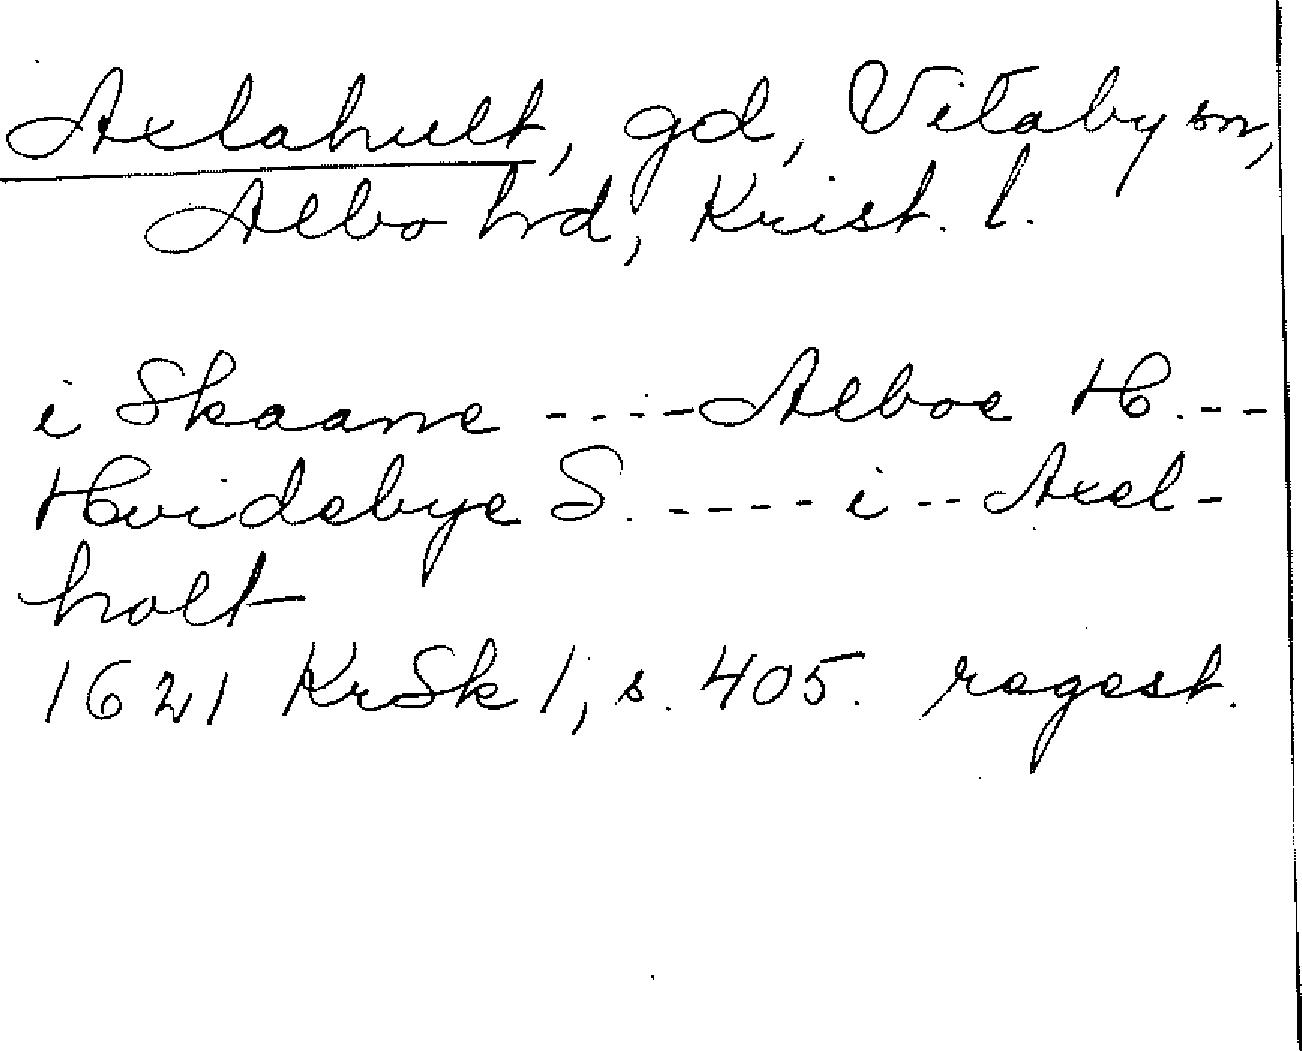 Axlahult, gd, Vitaby sn,
Albo hrd, Krist. l.
i Skaane ----- Alboe H. --
Hvidebye S. ----- i -- Axel-
holt
1621 KrSk 1, s. 405. regest.